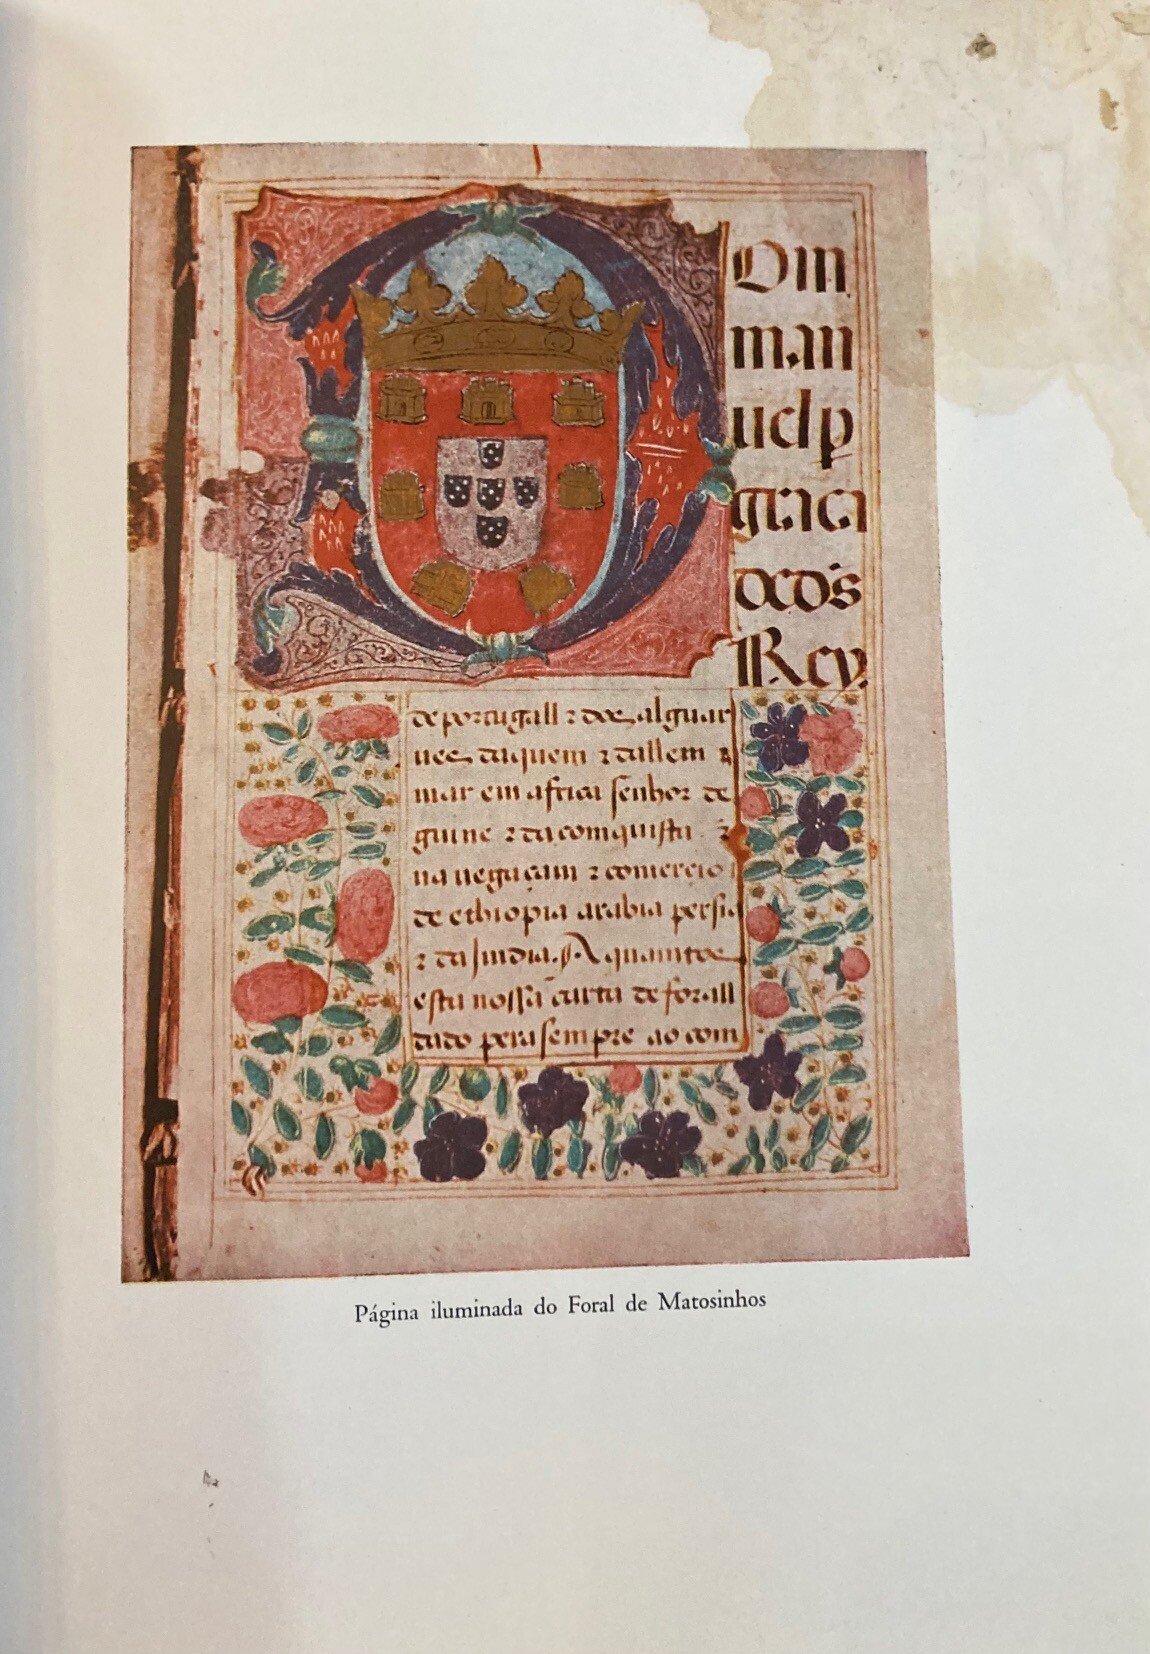 Dom
man
uel p
graca
de ds
Rey
de portugall ⁊ dos alguar
ues daquem ⁊ dallem
mar em africa senhor de
guine ⁊ da comquista ⁊
nauegaçam ⁊ comercio
de ethiopia arabia persia
⁊ da Jndia. A quamtos
esta nossa carta de forall
dado pera sempre ao com
Página iluminada do Foral de Matosinhos